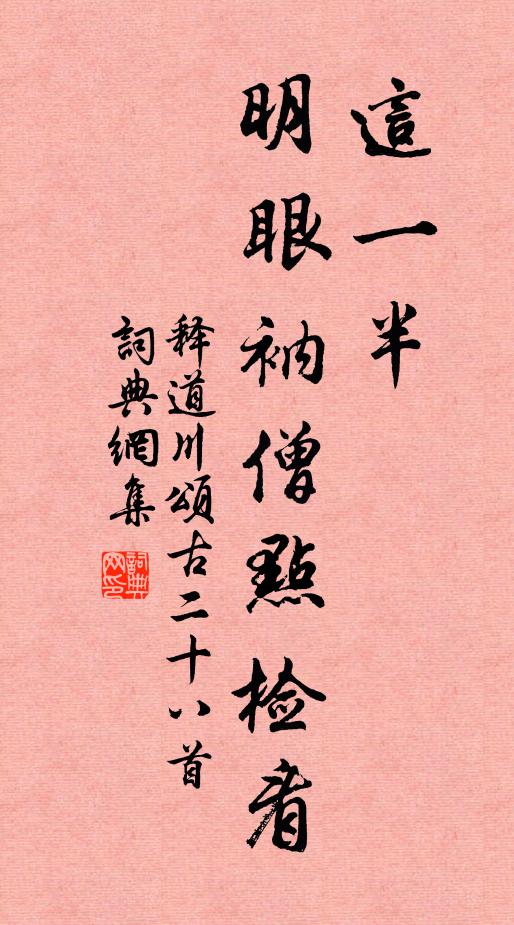 這一半
明眼衲僧點检看
释道川頌古二十八首
詞典網集
詞典网印